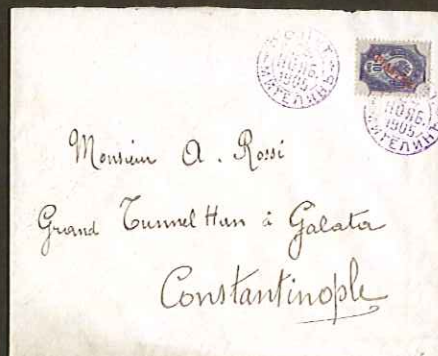 НОЯБ.
1905
НОЯБ.
1905
Monsieur A. Rossi
Grand Tunnel Han à Galata
Constantinople